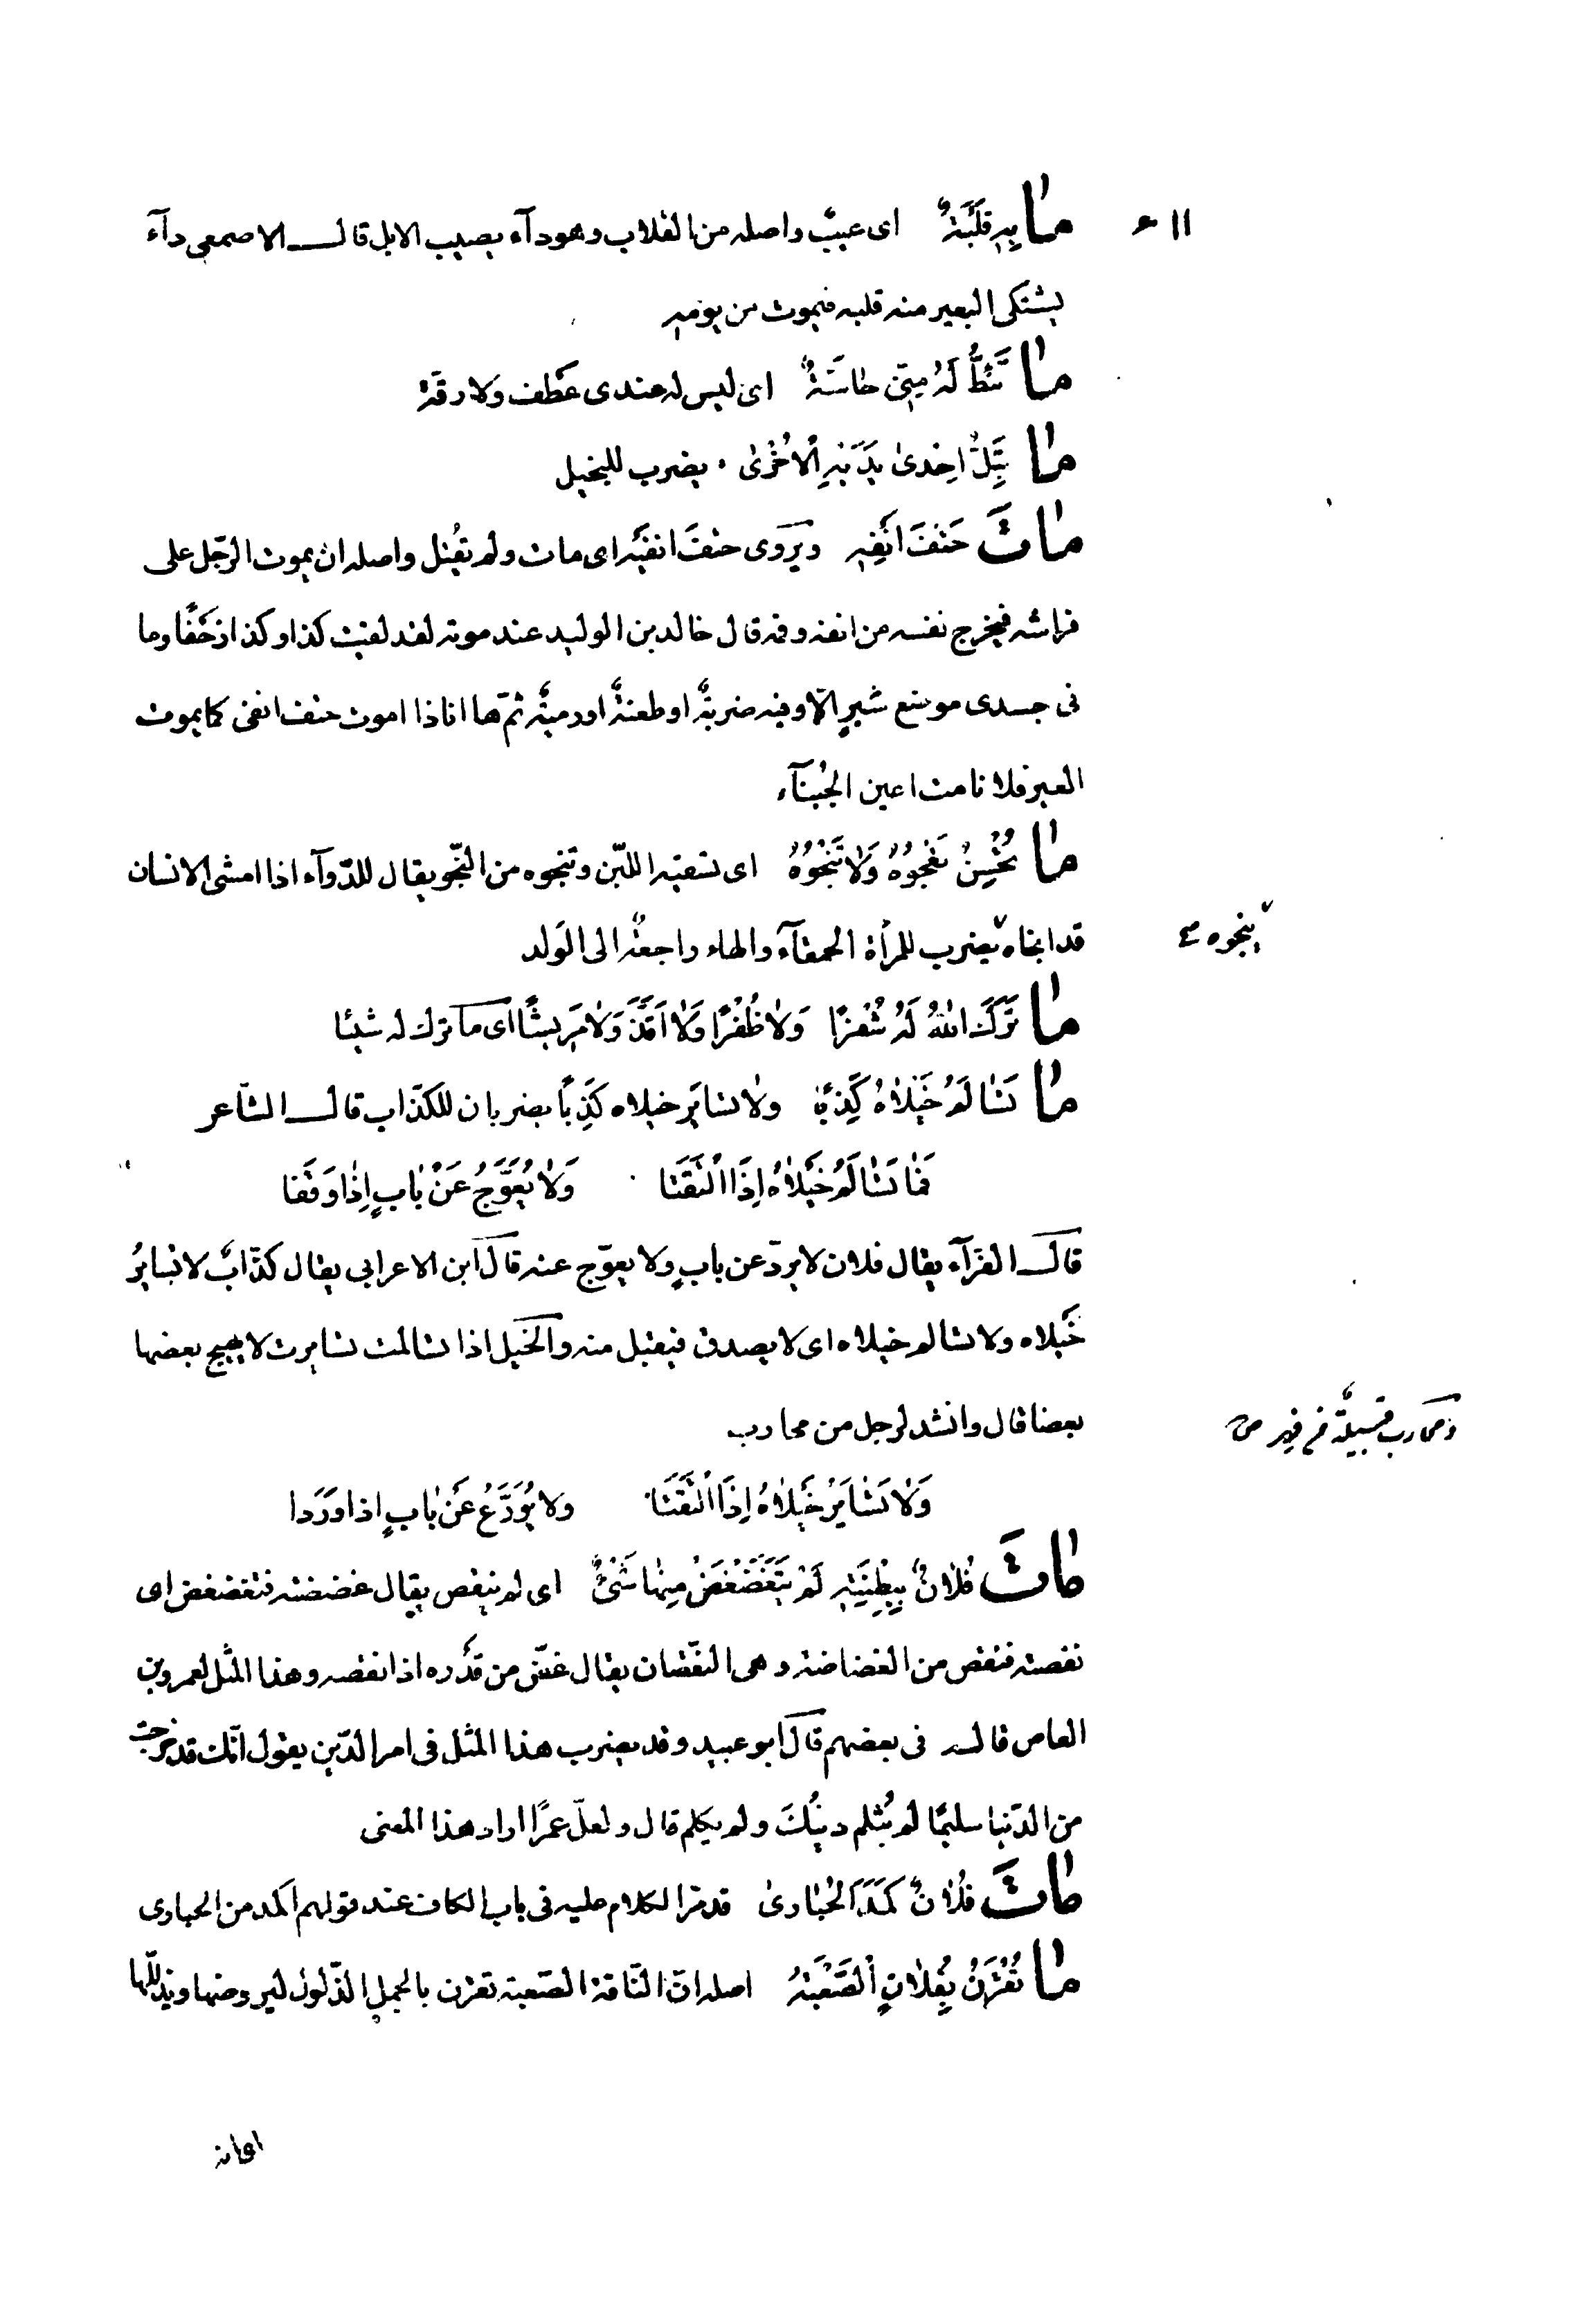 مَا بِهِ قَلَبَةٌ اى عيبٌ واصله من القلاب وهو دآء يصيب الابل قال الاصمعى دآء
يشتكى البعير منه قلبه فيموت من يومهِ
مَا تَئِطُّ لَهُ مِنّى حَاسَّةٌ اى ليس له عندى عَطف ولا رقّة
مَا تَبِلُّ اِحْدىٰ يَدَيْهِ الْاُخْرىٰ يضرب للبخيل
مَاتَ حَتْفَ اَنْفِهِ ويروى حتفَ انفَيْه اى مات ولم يقُتل واصله ان يموت الرّجل على
فراشه فيخرج نفسه من انفه وفمه قال خالد بن الوليد عند موته لقد لقيت كذا وكذا زحْفًا وما
فى جسدى موضع شبرٍ الّا وفيه ضربةٌ او طعنةٌ او رميةٌ ثمّ ها انا ذا اموت حتف انفى كما يموت
العير فلا نامت اعين الجُبَنآء
مَا تُحْسِنُ تَعْجُوُهُ وَلَا تَنْجُوُهُ اى تسقيه اللّبن وتنجوه من النّجو يقال للدّوآء اذا امشى الانسان
قد انجاه يضرب للمرأة الحمقآء والهاء راجعةٌ الى الوَلد
ينجوه
مَا تَرَكَ اللهُ لَهُ شُفْرًا وَلَا ظُفْرًا وَلَا اَقَذَّ وَلَا مَرِيشًا اى ما ترك له شيئا
مَا تَسَالَمُ خَيْلَاهُ كَذِبًا ولا تسايَر خيلاه كَذِبًا يضربان للكذّاب قال الشّاعر
فَمَا تَسَالَمُ خَيْلَاهُ اِذَا الْتَقَتَا وَلَا يُعَوَّجُ عَنْ بَابٍ اِذَا وَقَفَا
قال الفرّآء يقال فلان لا يردّ عن بابٍ ولا يعوّج عنه قال ابن الاعرابى يقال كذّابٌ لا تسايرُ
خَيلاه ولا تسالم خيلاه اى لا يصدق فيقبل منه والخيل اذا تسالمت تسايرت لا يهيج بعضها
بعضا قال وانشد لرجل من محارب
ومحارب قبيلةٌ من فهر ص
وَلَا تَسَايَرُ خَيْلَاهُ اِذَا الْتَقَتَا ولا يُرَدَّعُ عَنْ بَابٍ اذا وَرَدَا
مَاتَ فُلَانٌ بِبِطْنَتِهِ لَمْ يَتَغَضْغَضْ مِنْهَا شَئٌْ اى لم ينقص يقال غضغضته فتغضغض اى
نقصته فنقص من الغضاضة وهى النّقصان يقال غضّ من قَدْره اذا نقصه وهذا المثل لعمرو بن
العاص قاله فى بعضهم قال ابو عبيد وقد يضرب هذا المثل فى امر الدّين يقول انّك قد خرجت
من الدّنيا سليمًا لم يُثلم دينُكَ ولم يكلم قال ولعلّ عمرًا اراد هذا المعنى
مَاتَ فُلَانٌ كَمَدَ الْحُبَارىٰ قد مرّ الكلام عليه فى باب الكاف عند قولهم اكمد من الحبارى
مَا تُقْرَنُ بِفُلَانٍ الصَّعْبَةُ اصله انّ النّاقة الصّعبة تقرن بالجمل الذّلول ليروضها ويذلّلها